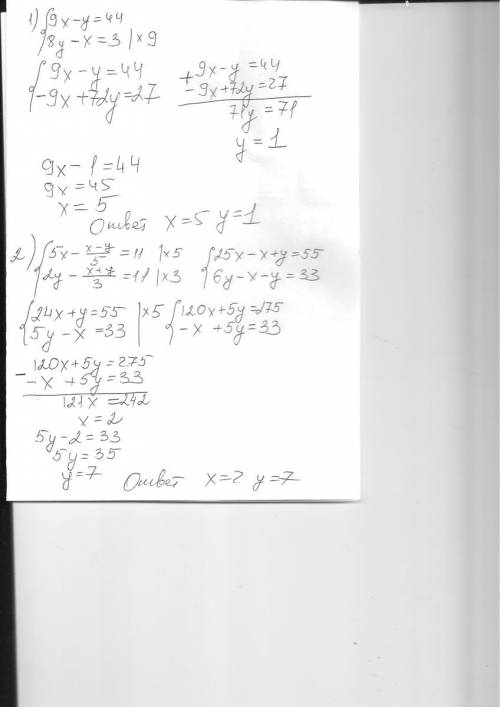 1) { 9x-y=44
8y-x=3 | x9
{ 9x-y=44
-9x+72y=27
+ 9x-y=44
-9x+72y=27
71y=71
y=1
9x-1=44
9x=45
x=5
Ответ x=5 y=1
2) { 5x-(x-y)/5=11 | x5
2y-(x+y)/3=11 | x3
{ 25x-x+y=55
6y-x-y=33
{ 24x+y=55 | x5
5y-x=33
{ 120x+5y=275
-x+5y=33
- 120x+5y=275
-x+5y=33
121x=242
x=2
5y-2=33
5y=35
y=7
Ответ x=2 y=7